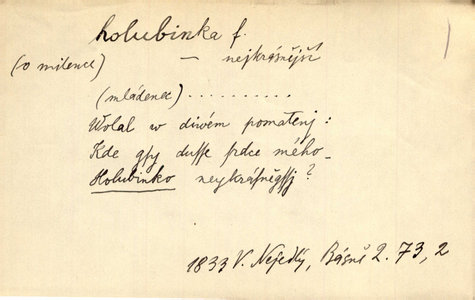 holubinka f.
(o milence) – nejkrásnější
(mládenec) ..........
Wolal w diwém pomatenj:
Kde gsy dusse srdce mého_
Holubinko neykrásněgssj?
1833 V. Nejedlý, Básně 2. 73, 2